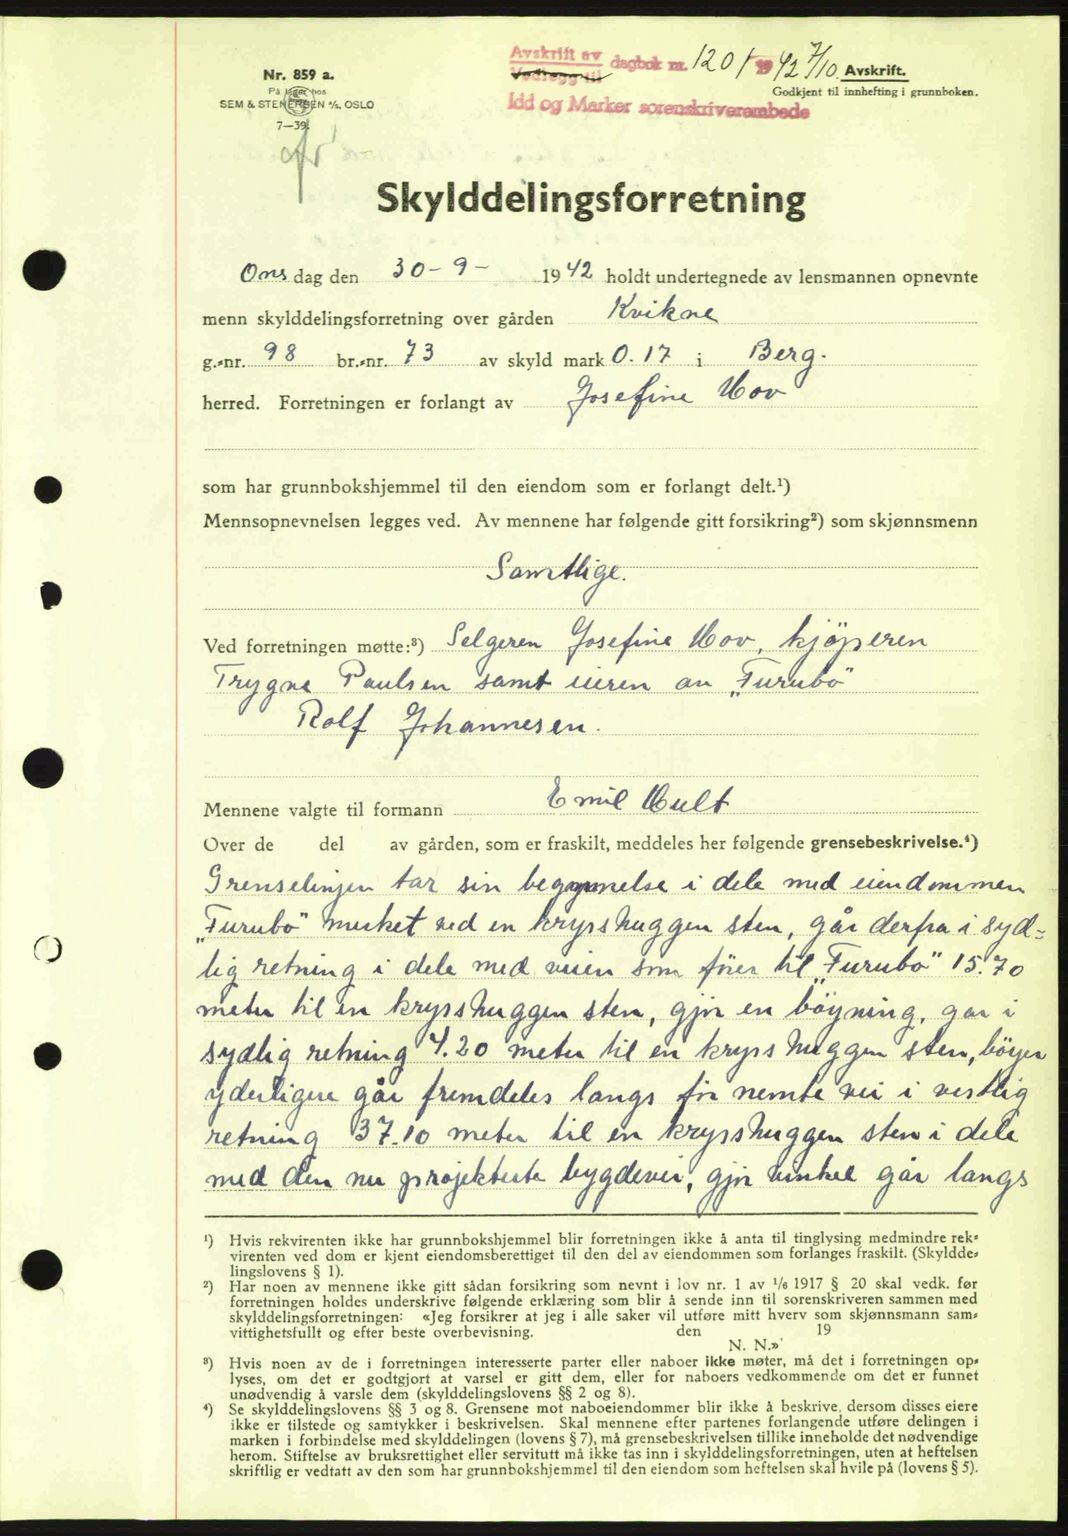 Avskrift av dagbok nr. 1201 1942 7/10 Avskrift.
Vedlegg til
Idd og Marker sorenskriverembede
Godkjent til innhefting i grunnboken.
Nr. 859 a.
På lager hos
SEM & STENERSEN A/S, OSLO
7—39.
Skylddelingsforretning
Onsdag den 30-9- 1942 holdt undertegnede av lensmannen opnevnte
menn skylddelingsforretning over gården Kvikne
g.-nr. 98 br.-nr. 73 av skyld mark 0.17 i Berg.
herred. Forretningen er forlangt av Josefine Hov
som har grunnbokshjemmel til den eiendom som er forlangt delt.¹)
Mennsopnevnelsen legges ved. Av mennene har følgende gitt forsikring²) som skjønnsmenn
Samtlige.
Ved forretningen møtte:³) Selgeren Josefine Hov, kjöperen
Trygve Paulsen samt eieren av „Furubo"
Rolf Johannesen.
Mennene valgte til formann Emil Hult
Over de del av gården, som er fraskilt, meddeles her følgende grensebeskrivelse.⁴)
Grenselinjen tar sin begynnelse i dele med eiendommen
„Furubo" merket ved en krysshuggen sten, går derfra i syd=
lig retning i dele med veien som fører til „Furubo" 15.70
meter til en krysshuggen sten, gjør en böyning, går i
sydlig retning 4.20 meter til en krysshuggen sten, böyer
yderligere går fremdeles langs før nemte vei i vestlig
retning 37.10 meter til en krysshuggen sten i dele
med den nu projekterte bygdevei, gjør vinkel går langs
¹) Hvis rekvirenten ikke har grunnbokshjemmel blir forretningen ikke å anta til tinglysing medmindre rek-
virenten ved dom er kjent eiendomsberettiget til den del av eiendommen som forlanges fraskilt. (Skyldde-
lingslovens § 1).
²) Har noen av mennene ikke gitt sådan forsikring som nevnt i lov nr. 1 av 1/6 1917 § 20 skal vedk. før
forretningen holdes underskrive følgende erklæring som blir å sende inn til sorenskriveren sammen med
skylddelingsforretningen: «Jeg forsikrer at jeg i alle saker vil utføre mitt hverv som skjønnsmann sam-
vittighetsfullt og efter beste overbevisning. den 19
N. N.»
³) Hvis noen av de i forretningen interesserte parter eller naboer ikke møter, må det i forretningen op-
lyses, om det er godtgjort at varsel er gitt dem, eller for naboers vedkommende om det er funnet
unødvendig å varsle dem (skylddelingslovens §§ 2 og 8).
⁴) Se skylddelingslovens §§ 3 og 8. Grensene mot naboeiendommer blir ikke å beskrive, dersom disses eiere
ikke er tilstede og samtykker i beskrivelsen. Skal mennene efter partenes forlangende utføre delingen i
marken i forbindelse med skylddelingen (lovens § 7), må grensebeskrivelsen tillike inneholde det nødvendige
herom. Stiftelse av bruksrettighet eller servitutt må ikke tas inn i skylddelingsforretningen, uten at heftelsen
skriftlig er vedtatt av den som har grunnbokshjemmel til den eiendom som heftelsen skal hvile på (lovens § 5).